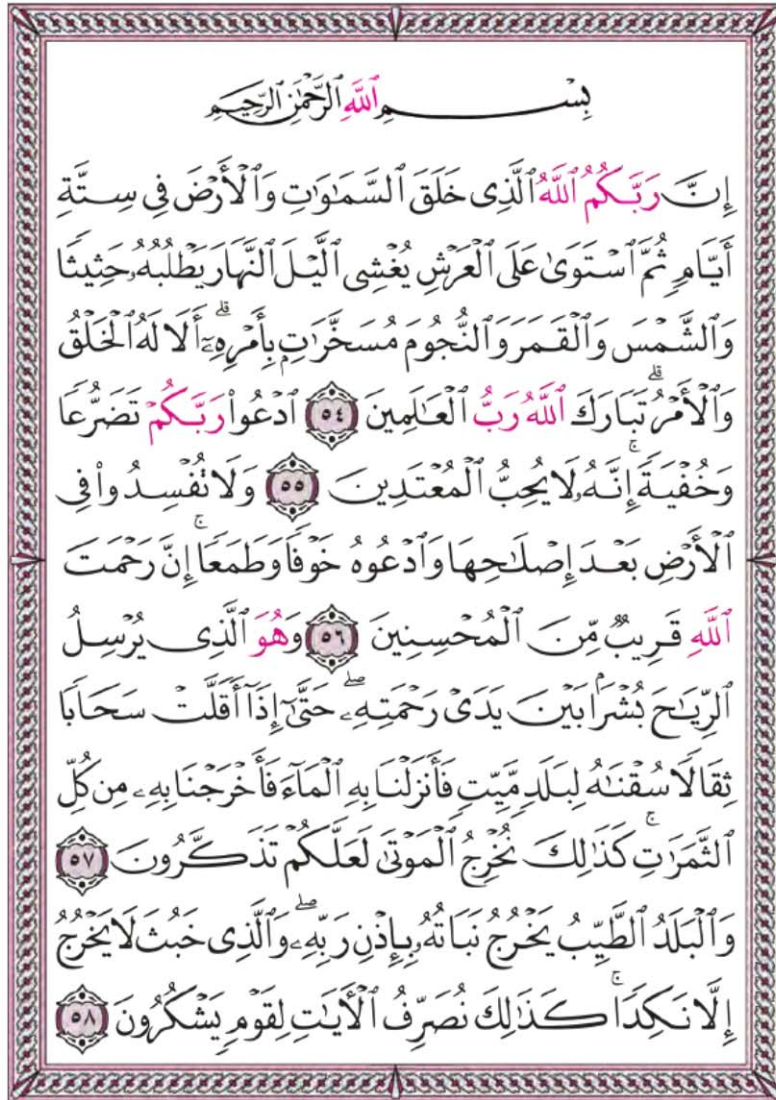 بِسْمِ ٱللَّهِ ٱلرَّحْمَٰنِ ٱلرَّحِيمِ
إِنَّ رَبَّكُمُ ٱللَّهُ ٱلَّذِى خَلَقَ ٱلسَّمَٰوَٰتِ وَٱلْأَرْضَ فِى سِتَّةِ
أَيَّامٍ ثُمَّ ٱسْتَوَىٰ عَلَى ٱلْعَرْشِ يُغْشِى ٱلَّيْلَ ٱلنَّهَارَ يَطْلُبُهُۥ حَثِيثًا
وَٱلشَّمْسَ وَٱلْقَمَرَ وَٱلنُّجُومَ مُسَخَّرَٰتٍۭ بِأَمْرِهِۦٓ ۗ أَلَا لَهُ ٱلْخَلْقُ
وَٱلْأَمْرُ ۗ تَبَارَكَ ٱللَّهُ رَبُّ ٱلْعَٰلَمِينَ ٥٤ ٱدْعُوا۟ رَبَّكُمْ تَضَرُّعًا
وَخُفْيَةً ۚ إِنَّهُۥ لَا يُحِبُّ ٱلْمُعْتَدِينَ ٥٥ وَلَا تُفْسِدُوا۟ فِى
ٱلْأَرْضِ بَعْدَ إِصْلَٰحِهَا وَٱدْعُوهُ خَوْفًا وَطَمَعًا ۚ إِنَّ رَحْمَتَ
ٱللَّهِ قَرِيبٌ مِّنَ ٱلْمُحْسِنِينَ ٥٦ وَهُوَ ٱلَّذِى يُرْسِلُ
ٱلرِّيَٰحَ بُشْرًۢا بَيْنَ يَدَىْ رَحْمَتِهِۦ ۖ حَتَّىٰٓ إِذَآ أَقَلَّتْ سَحَابًا
ثِقَالًا سُقْنَٰهُ لِبَلَدٍ مَّيِّتٍ فَأَنزَلْنَا بِهِ ٱلْمَآءَ فَأَخْرَجْنَا بِهِۦ مِن كُلِّ
ٱلثَّمَرَٰتِ ۚ كَذَٰلِكَ نُخْرِجُ ٱلْمَوْتَىٰ لَعَلَّكُمْ تَذَكَّرُونَ ٥٧
وَٱلْبَلَدُ ٱلطَّيِّبُ يَخْرُجُ نَبَاتُهُۥ بِإِذْنِ رَبِّهِۦ ۖ وَٱلَّذِى خَبُثَ لَا يَخْرُجُ
إِلَّا نَكِدًا ۚ كَذَٰلِكَ نُصَرِّفُ ٱلْءَايَٰتِ لِقَوْمٍ يَشْكُرُونَ ٥٨